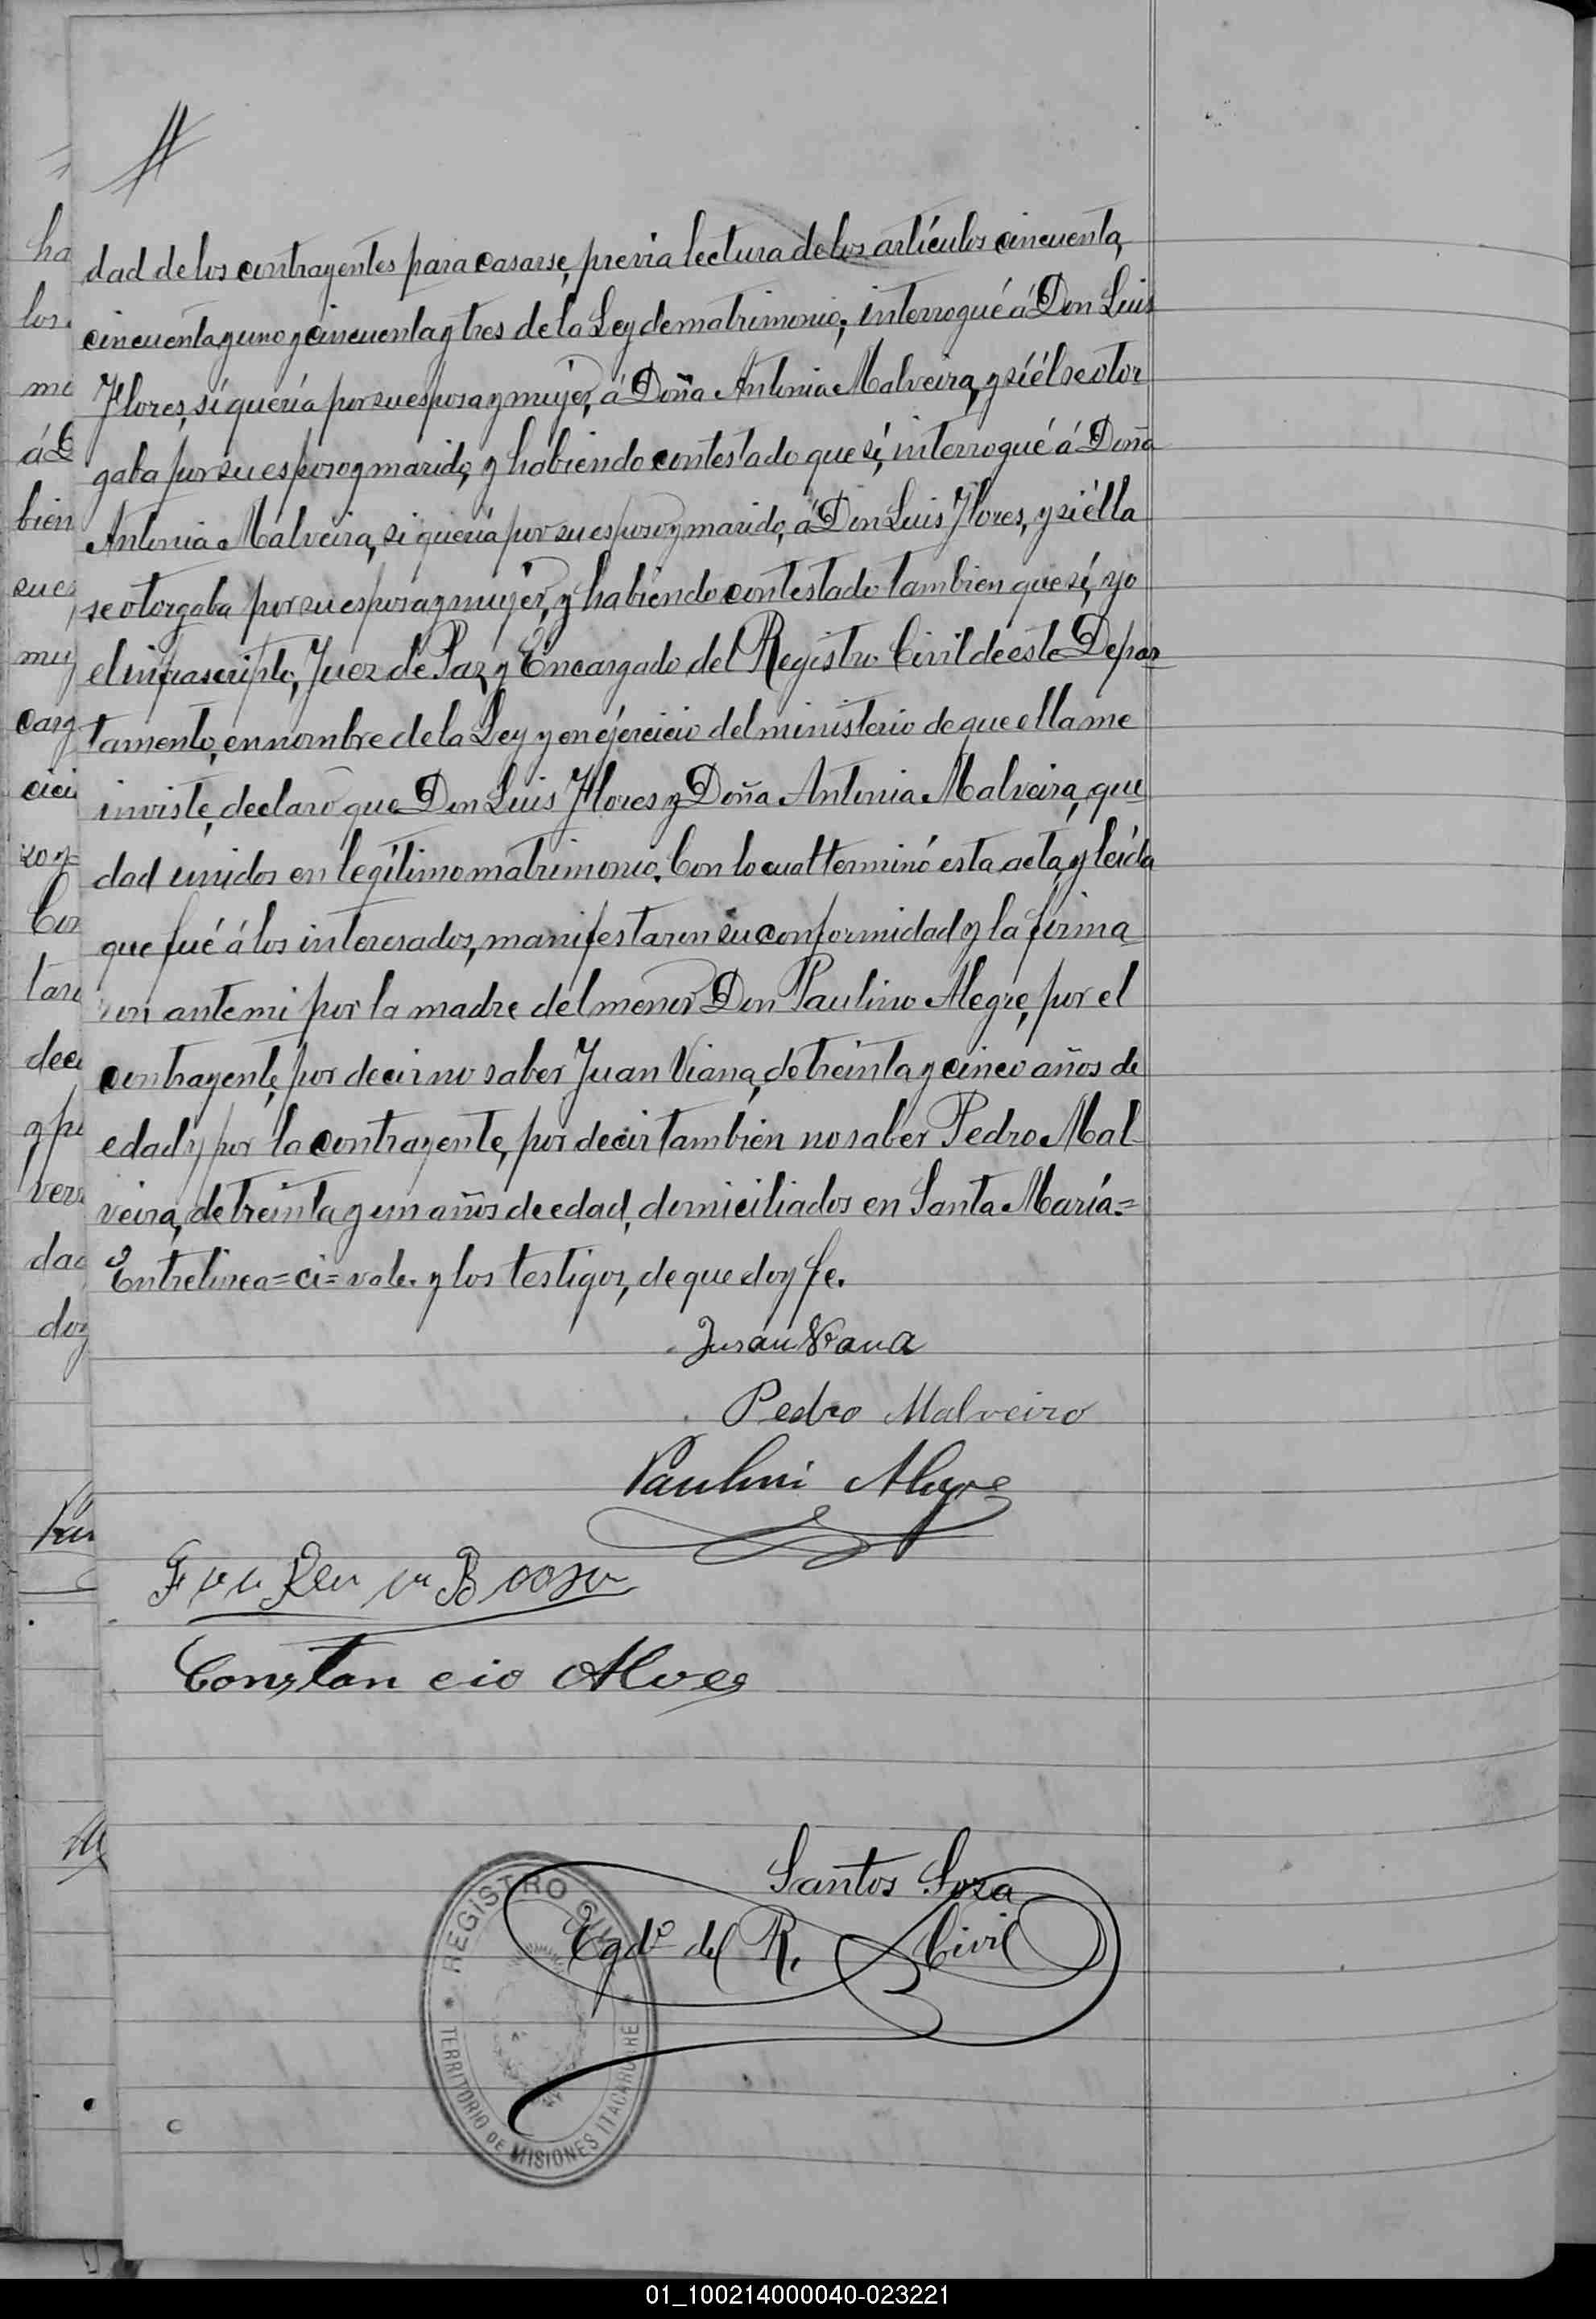 dad de los contrayentes para casarse, previa lectura de los artículos cincuenta,
cincuenta y uno y cincuenta y tres de la Ley de matrimonio, interrogué á Don Luis
Flores, si quería por su esposa y mujer, á Doña Antonia Malveira, y si él se otor
gaba por su esposo y marido, y habiendo contestado que sí, interrogué á Doña
Antonia Malveira, si quería por su esposo y marido, á Don Luis Flores, y si élla
se otorgaba por su esposa y mujer, y habiendo contestado tambien que sí, yo
el infrascripto, Juez de Paz y Encargado del Registro Civil de este Depar
tamento, en nombre de la Ley y en ejercicio del ministerio de que ella me
inviste, declaro que Don Luis Flores y Doña Antonia Malveira, que
dad unidos en legítimo matrimonio. Con lo cual terminó esta acta, y leída
que fué á los interesados, manifestaron su conformidad y la firma
ron ante mi por la madre del menor Don Paulino Alegre, por el
contrayente, por decir no saber Juan Viana, de treinta y cinco años de
edad y por la contrayente, por decir tambien no saber Pedro Mal
veira, de treinta y un años de edad, domiciliados en Santa María.=
Entrelinea=ci=vale. y los testigos, de que doy fe.
Juan Viana
Pedro Malveiro
Paulini Alegre
Constan cio Alves
Santos Soza
Egdo del R. Civil
REGISTRO CIVIL
TERRITORIO DE MISIONES ITACARUARÉ
ha
los
mi
á D
bien
su es
muj
carg
cici
so y
Con
taro
dec
y po
vers
dad
doy
01_100214000040-023221